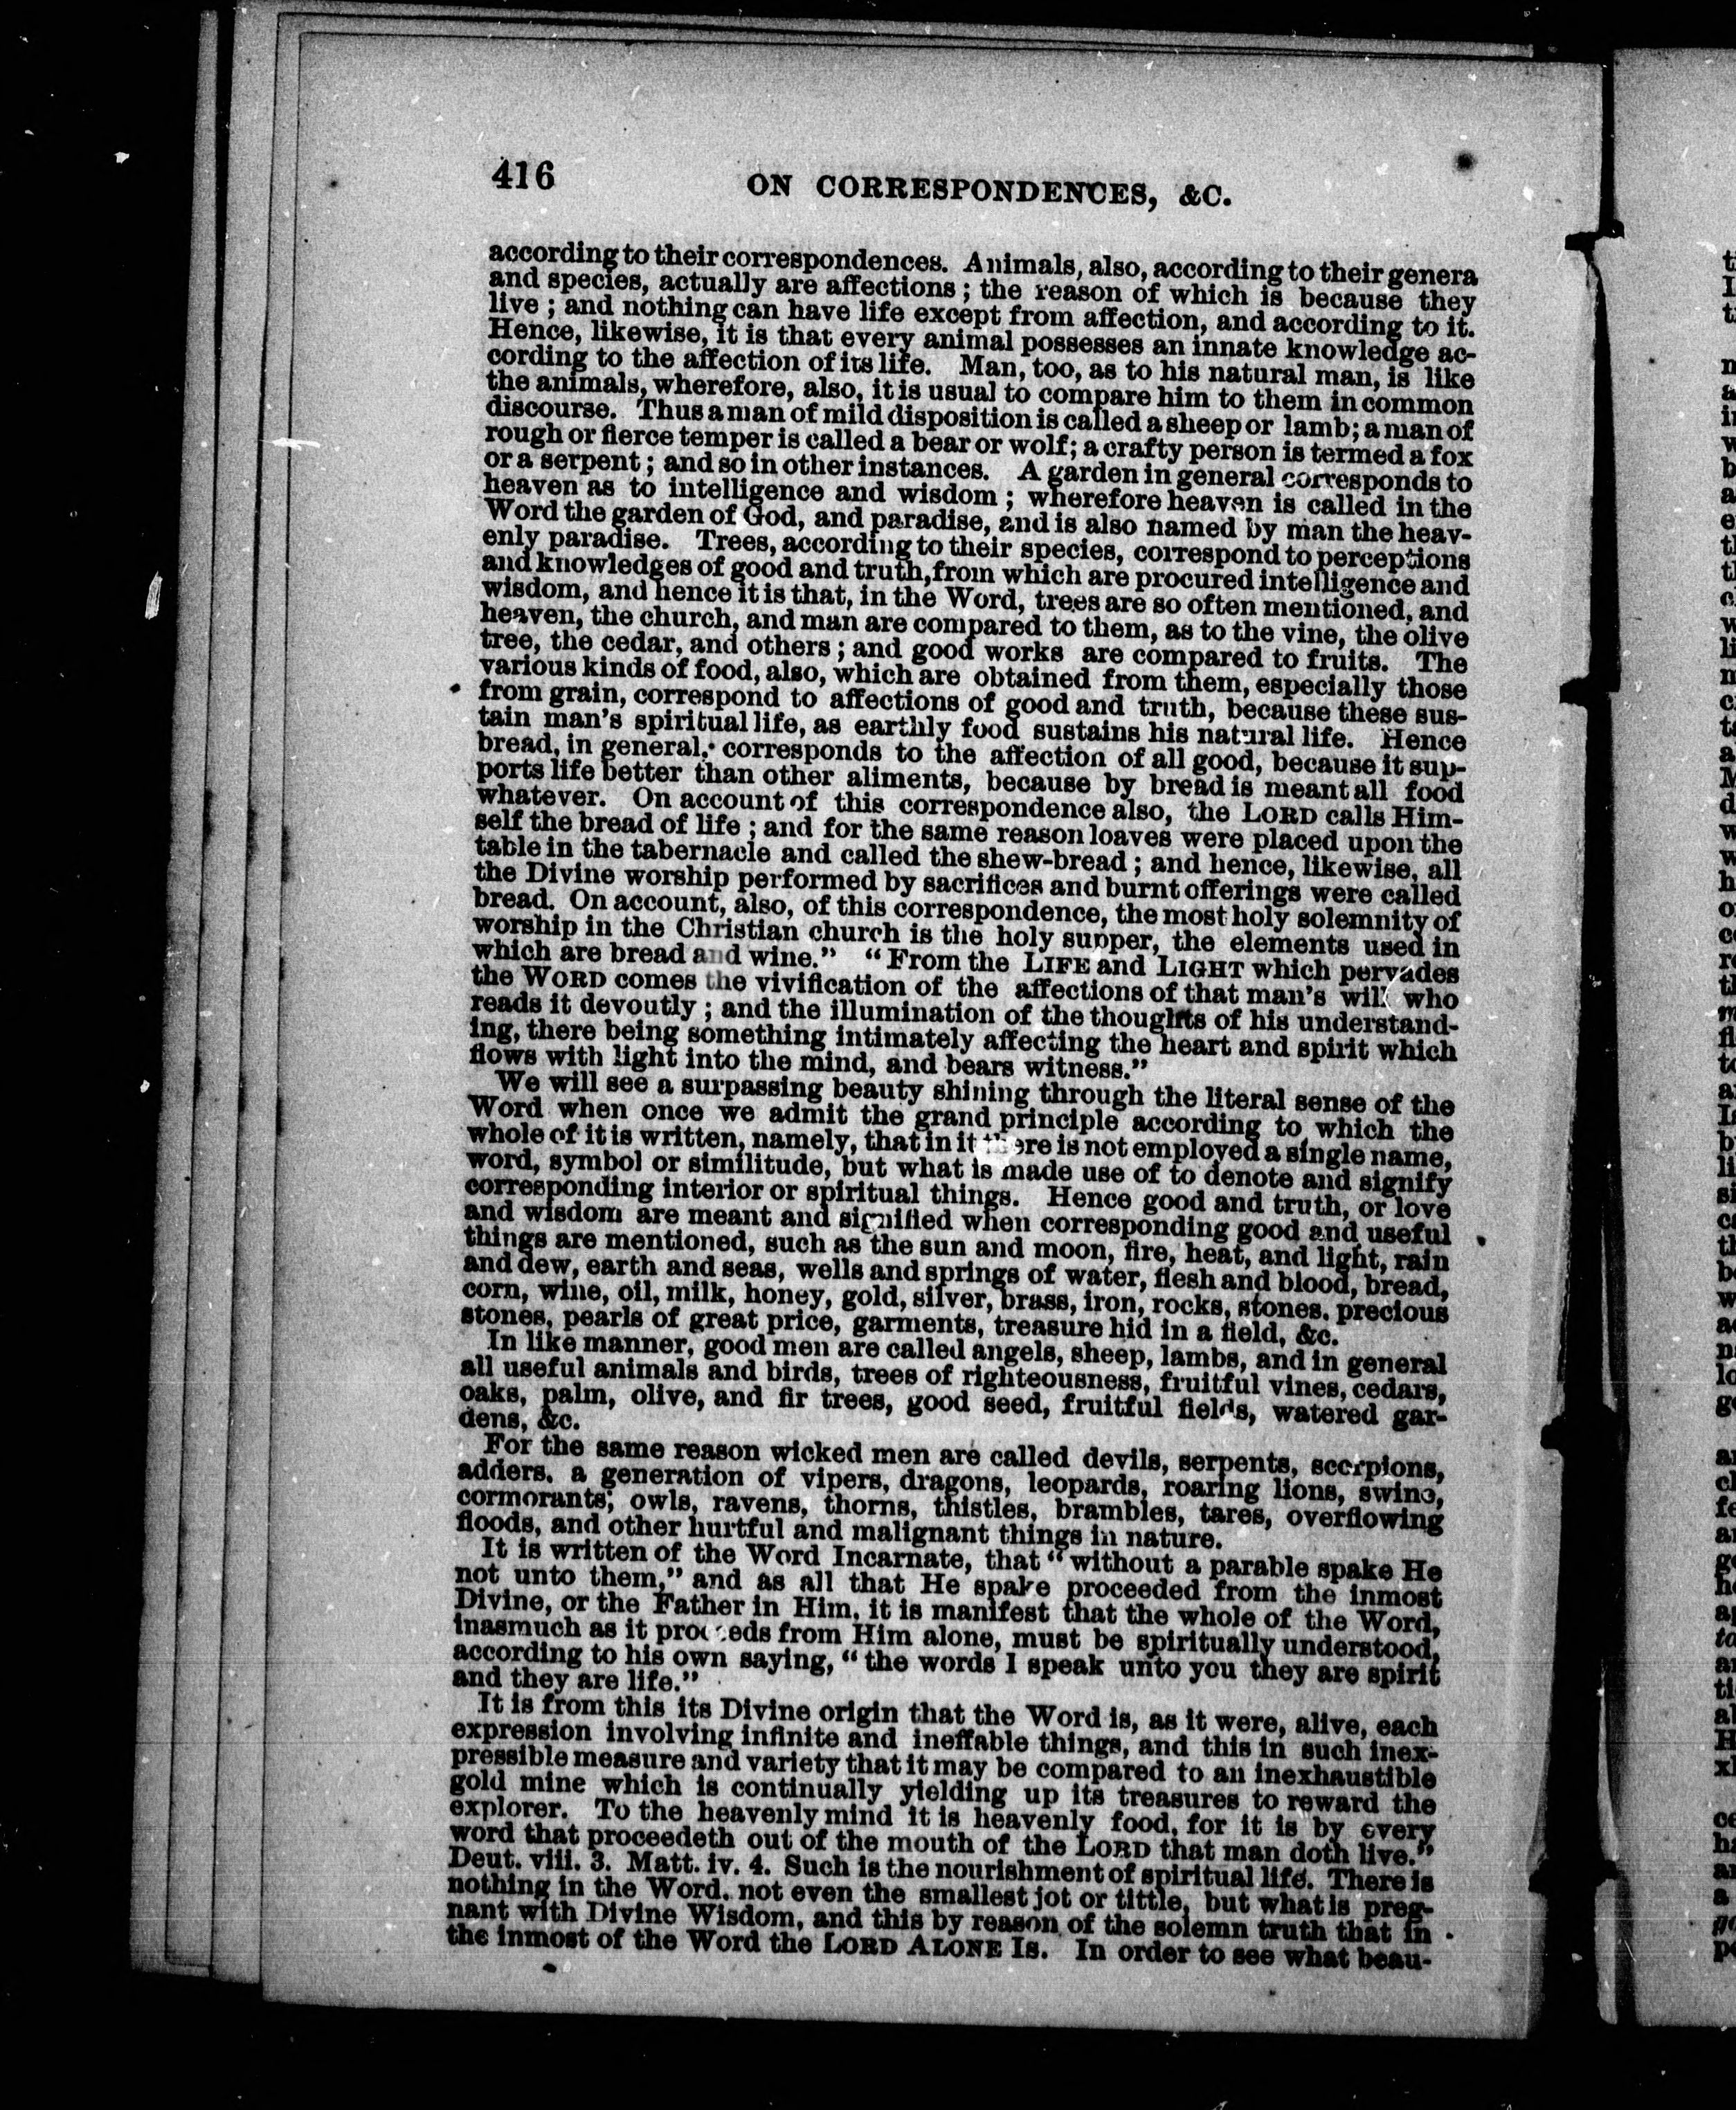 416
ON CORRESPONDENCES, &C.
according to their correspondences. Animals, also, according to their genera
and species, actually are affections; the reason of which is because they
live; and nothing can have life except from affection, and according to it.
Hence, likewise, it is that every animal possesses an innate knowledge ac-
cording to the affection of its life. Man, too, as to his natural man, is like
the animals, wherefore, also, it is usual to compare him to them in common
discourse. Thus a man of mild disposition is called a sheep or lamb; a man of
rough or fierce temper is called a bear or wolf; a crafty person is termed a fox
or a serpent; and so in other instances. A garden in general corresponds to
heaven as to intelligence and wisdom; wherefore heaven is called in the
Word the garden of God, and paradise, and is also named by man the heav-
enly paradise. Trees, according to their species, correspond to perceptions
and knowledges of good and truth, from which are procured intelligence and
wisdom, and hence it is that, in the Word, trees are so often mentioned, and
heaven, the church, and man are compared to them, as to the vine, the olive
tree, the cedar, and others; and good works are compared to fruits. The
various kinds of food, also, which are obtained from them, especially those
from grain, correspond to affections of good and truth, because these sus-
tain man's spiritual life, as earthly food sustains his natural life. Hence
bread, in general, corresponds to the affection of all good, because it sup-
ports life better than other aliments, because by bread is meant all food
whatever. On account of this correspondence also, the LORD calls Him-
self the bread of life; and for the same reason loaves were placed upon the
table in the tabernacle and called the shew-bread; and hence, likewise, all
the Divine worship performed by sacrifices and burnt offerings were called
bread. On account, also, of this correspondence, the most holy solemnity of
worship in the Christian church is the holy supper, the elements used in
which are bread and wine." "From the LIFE and LIGHT which pervades
the WORD comes the vivification of the affections of that man's will who
reads it devoutly; and the illumination of the thoughts of his understand-
ing, there being something intimately affecting the heart and spirit which
flows with light into the mind, and bears witness."
We will see a surpassing beauty shining through the literal sense of the
Word when once we admit the grand principle according to which the
whole of it is written, namely, that in it there is not employed a single name,
word, symbol or similitude, but what is made use of to denote and signify
corresponding interior or spiritual things. Hence good and truth, or love
and wisdom are meant and signified when corresponding good and useful
things are mentioned, such as the sun and moon, fire, heat, and light, rain
and dew, earth and seas, wells and springs of water, flesh and blood, bread,
corn, wine, oil, milk, honey, gold, silver, brass, iron, rocks, stones, precious
stones, pearls of great price, garments, treasure hid in a field, &c.
In like manner, good men are called angels, sheep, lambs, and in general
all useful animals and birds, trees of righteousness, fruitful vines, cedars,
oaks, palm, olive, and fir trees, good seed, fruitful fields, watered gar-
dens, &c.
For the same reason wicked men are called devils, serpents, scorpions,
adders, a generation of vipers, dragons, leopards, roaring lions, swine,
cormorants, owls, ravens, thorns, thistles, brambles, tares, overflowing
floods, and other hurtful and malignant things in nature.
It is written of the Word Incarnate, that "without a parable spake He
not unto them," and as all that He spake proceeded from the inmost
Divine, or the Father in Him, it is manifest that the whole of the Word,
inasmuch as it proceeds from Him alone, must be spiritually understood,
according to his own saying, "the words I speak unto you they are spirit
and they are life."
It is from this its Divine origin that the Word is, as it were, alive, each
expression involving infinite and ineffable things, and this in such inex-
pressible measure and variety that it may be compared to an inexhaustible
gold mine which is continually yielding up its treasures to reward the
explorer. To the heavenly mind it is heavenly food, for it is by every
word that proceedeth out of the mouth of the LORD that man doth live."
Deut. viii. 3. Matt. iv. 4. Such is the nourishment of spiritual life. There is
nothing in the Word, not even the smallest jot or tittle, but what is preg-
nant with Divine Wisdom, and this by reason of the solemn truth that in
the inmost of the Word the LORD ALONE IS. In order to see what beau-